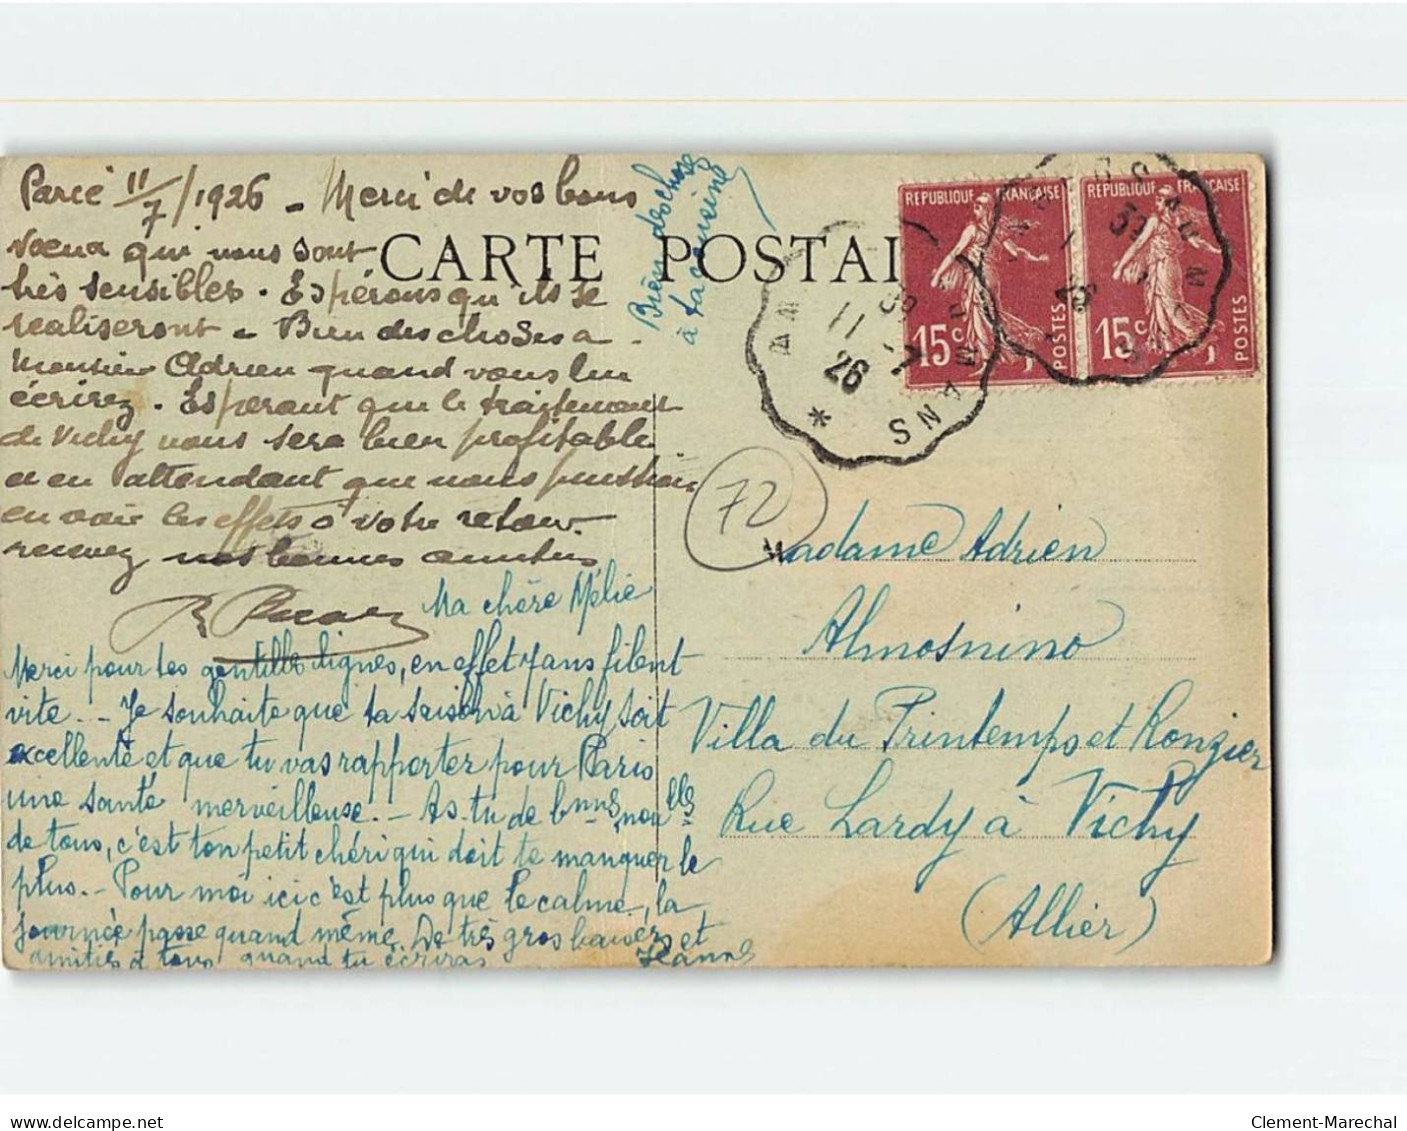 Parcé 11/7/1926 - Merci de vos bons
voeux qui nous sont
très sensibles. Espérons qu'ils se
realiseront - Bien des choses a
Monsieur Adrien quand vous lui
écrirez. Esperant que le traitement
de Vichy vous sera bien profitable
et en attendant que nous puissions
en voir les effets à votre retour
recevez nos bonnes amitiés
Ma chère Mélie
Merci pour tes gentilles lignes, en effet 7 ans filent
vite. - Je souhaite que ta saison à Vichy soit
excellente et que tu vas rapporter pour Paris
une santé merveilleuse. - As-tu de bnnes nouelles
de tous, c'est ton petit chéri qui doit te manquer le
plus. - Pour moi ici c'est plus que le calme, la
journée passe quand même. De très gros baisers et
amitiés à tous quand tu écriras Jeanne
Bien des choses
à ta cousine
CARTE POSTAL
REPUBLIQUE FRANÇAISE
15c
POSTES
REPUBLIQUE FRANÇAISE
15c
POSTES
11
26
MANS
*
72
Madame Adrien
Almosnino
Villa du Printemps et Rongier
Rue Lardy à Vichy
(Allier)
Clement-Marechal